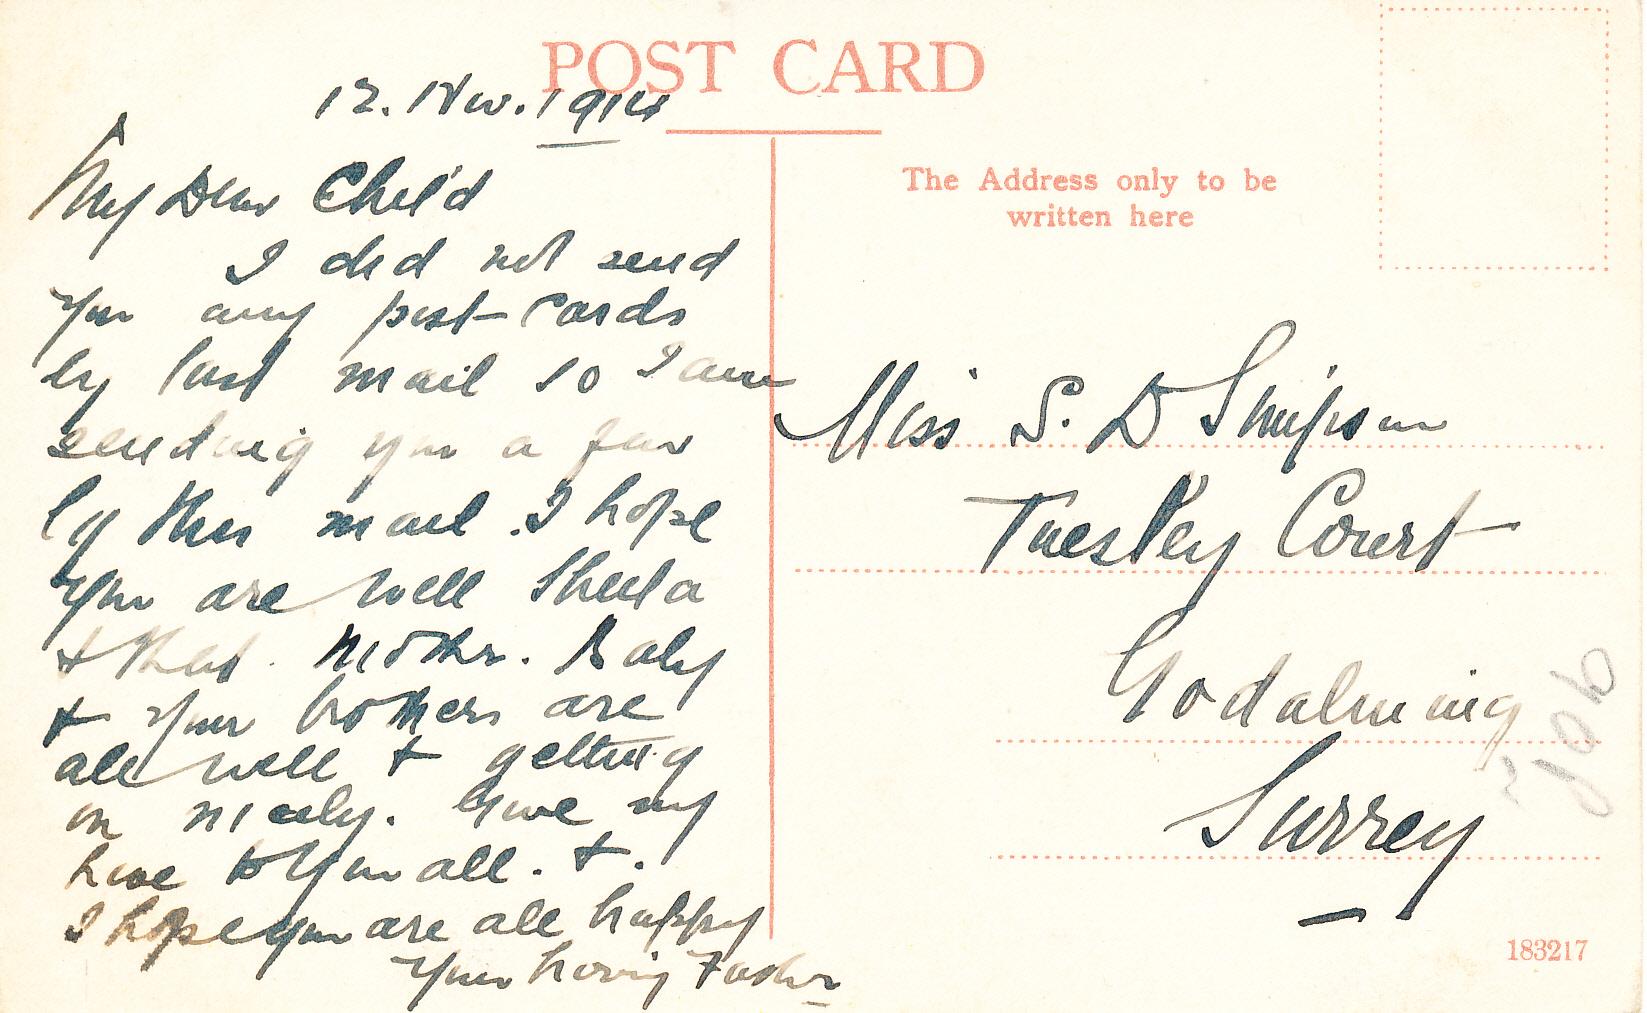 POST CARD
12. Nov. 1914
My Dear Child
I did not send
you any post-cards
by last mail so I am
sending you a few
by this mail. I hope
you are well Sheila
& that. Mother. Baby
& your brothers are
all well & getting
on nicely. Give my
love to you all. &.
I hope you are all happy
Your loving Father
The Address only to be
written here
Miss S. D Simpson
Tuesley Court
Godalming
Surrey
183217